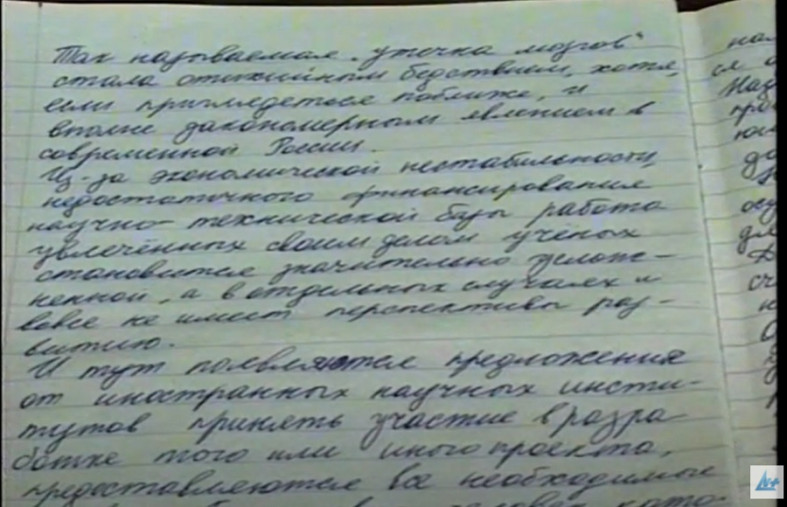 Так называемая „утечка мозгов“
стала стихийным бедствием, хотя,
если приглядеться поближе, и
вполне закономерным явлением в
современной России.
Из-за экономической нестабильности,
недостаточного финансирования
научно-технической базы работа
увлечённых своим делом учёных
становится значительно услож-
ненной, а в отдельных случаях и
вовсе не имеет перспективы раз-
витию.
И тут появляются предложения
от иностранных научных инсти-
тутов принять участие в разра
ботке того или иного проекта,
предоставляются все необходимые